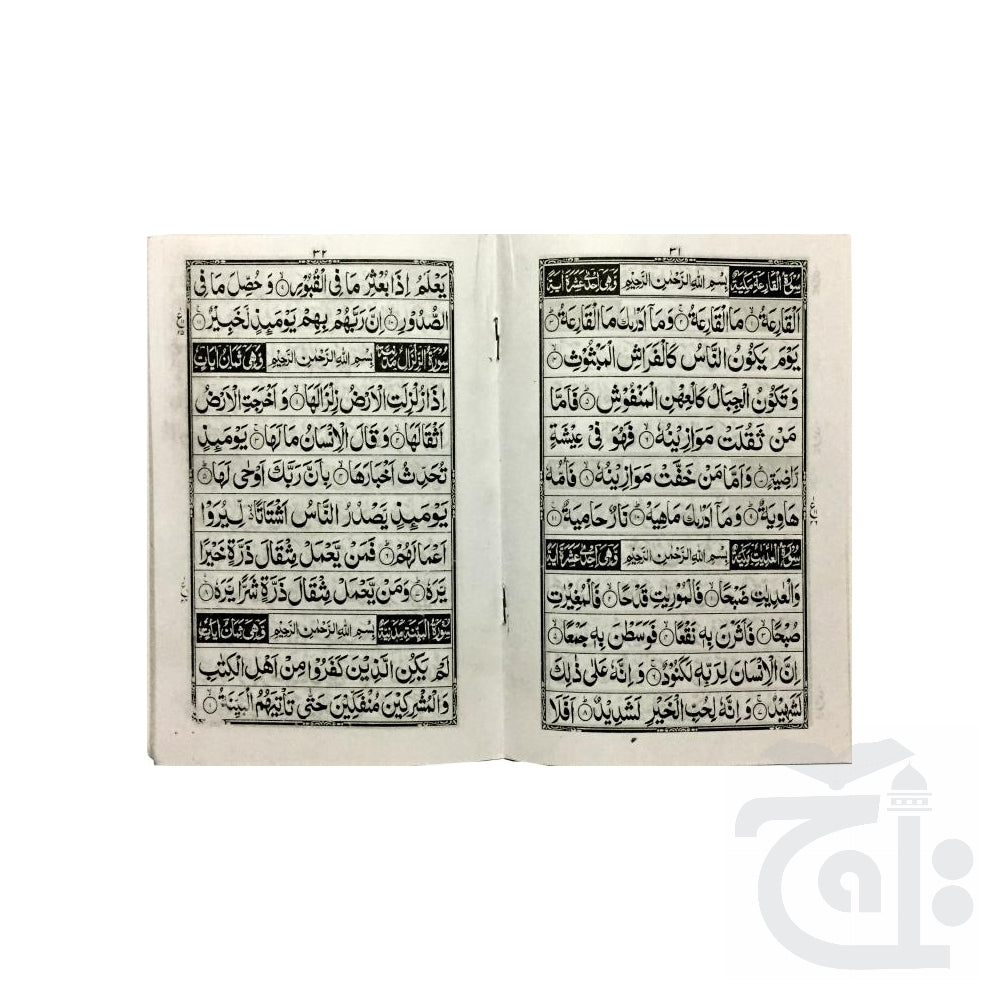 ٣١
سُوْرَةُ الْقَارِعَةِ مَكِّيَّةٌ بِسْمِ اللهِ الرَّحْمٰنِ الرَّحِيْمِ وَهِيَ اِحْدٰى عَشَرَةَ اٰيَةً
اَلْقَارِعَةُ ۝١ مَا الْقَارِعَةُ ۝٢ وَمَاۤ اَدْرٰىكَ مَا الْقَارِعَةُ ۝٣
يَوْمَ يَكُوْنُ النَّاسُ كَالْفَرَاشِ الْمَبْثُوْثِ ۝٤
وَتَكُوْنُ الْجِبَالُ كَالْعِهْنِ الْمَنْفُوْشِ ۝٥ فَاَمَّا
مَنْ ثَقُلَتْ مَوَازِيْنُهٗ ۝٦ فَهُوَ فِيْ عِيْشَةٍ
رَّاضِيَةٍ ۝٧ وَاَمَّا مَنْ خَفَّتْ مَوَازِيْنُهٗ ۝٨ فَاُمُّهٗ
هَاوِيَةٌ ۝٩ وَمَاۤ اَدْرٰىكَ مَاهِيَهْ ۝١٠ نَارٌ حَامِيَةٌ ۝١١
سُوْرَةُ الْعٰدِيٰتِ مَكِّيَّةٌ بِسْمِ اللهِ الرَّحْمٰنِ الرَّحِيْمِ وَهِيَ اِحْدٰى عَشَرَةَ اٰيَةً
وَالْعٰدِيٰتِ ضَبْحًا ۝١ فَالْمُوْرِيٰتِ قَدْحًا ۝٢ فَالْمُغِيْرٰتِ
صُبْحًا ۝٣ فَاَثَرْنَ بِهٖ نَقْعًا ۝٤ فَوَسَطْنَ بِهٖ جَمْعًا ۝٥
اِنَّ الْاِنْسَانَ لِرَبِّهٖ لَكَنُوْدٌ ۝٦ وَاِنَّهٗ عَلٰى ذٰلِكَ
لَشَهِيْدٌ ۝٧ وَاِنَّهٗ لِحُبِّ الْخَيْرِ لَشَدِيْدٌ ۝٨ اَفَلَا
٣٢
يَعْلَمُ اِذَا بُعْثِرَ مَا فِي الْقُبُوْرِ ۝٩ وَحُصِّلَ مَا فِي
الصُّدُوْرِ ۝١٠ اِنَّ رَبَّهُمْ بِهِمْ يَوْمَئِذٍ لَّخَبِيْرٌ ۝١١
سُوْرَةُ الزِّلْزَالِ مَدَنِيَّةٌ بِسْمِ اللهِ الرَّحْمٰنِ الرَّحِيْمِ وَهِيَ ثَمَانُ اٰيَاتٍ
اِذَا زُلْزِلَتِ الْاَرْضُ زِلْزَالَهَا ۝١ وَاَخْرَجَتِ الْاَرْضُ
اَثْقَالَهَا ۝٢ وَقَالَ الْاِنْسَانُ مَا لَهَا ۝٣ يَوْمَئِذٍ
تُحَدِّثُ اَخْبَارَهَا ۝٤ بِاَنَّ رَبَّكَ اَوْحٰى لَهَا ۝٥
يَوْمَئِذٍ يَّصْدُرُ النَّاسُ اَشْتَاتًا لِّيُرَوْا
اَعْمَالَهُمْ ۝٦ فَمَنْ يَّعْمَلْ مِثْقَالَ ذَرَّةٍ خَيْرًا
يَّرَهٗ ۝٧ وَمَنْ يَّعْمَلْ مِثْقَالَ ذَرَّةٍ شَرًّا يَّرَهٗ ۝٨
سُوْرَةُ الْبَيِّنَةِ مَدَنِيَّةٌ بِسْمِ اللهِ الرَّحْمٰنِ الرَّحِيْمِ وَهِيَ ثَمَانُ اٰيَاتٍ
لَمْ يَكُنِ الَّذِيْنَ كَفَرُوْا مِنْ اَهْلِ الْكِتٰبِ
وَالْمُشْرِكِيْنَ مُنْفَكِّيْنَ حَتّٰى تَاْتِيَهُمُ الْبَيِّنَةُ ۝١